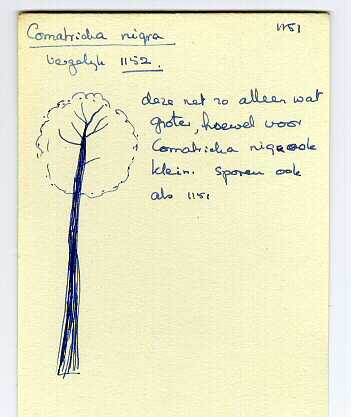 Comatricha nigra
1151
vergelyk 1152.
deze net zo alleen wat
groter, hoewel voor
Comatricha nigra ook
klein. sporen ook
als 1151